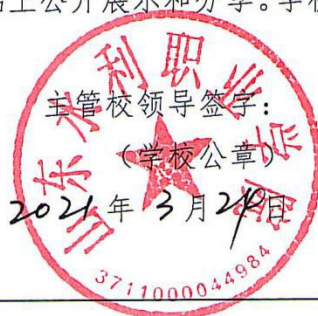 上公开展示和分享。学校
主管校领导签字:
(学校公章)
2021年3月24日
山东水利职业学院
3711000044984